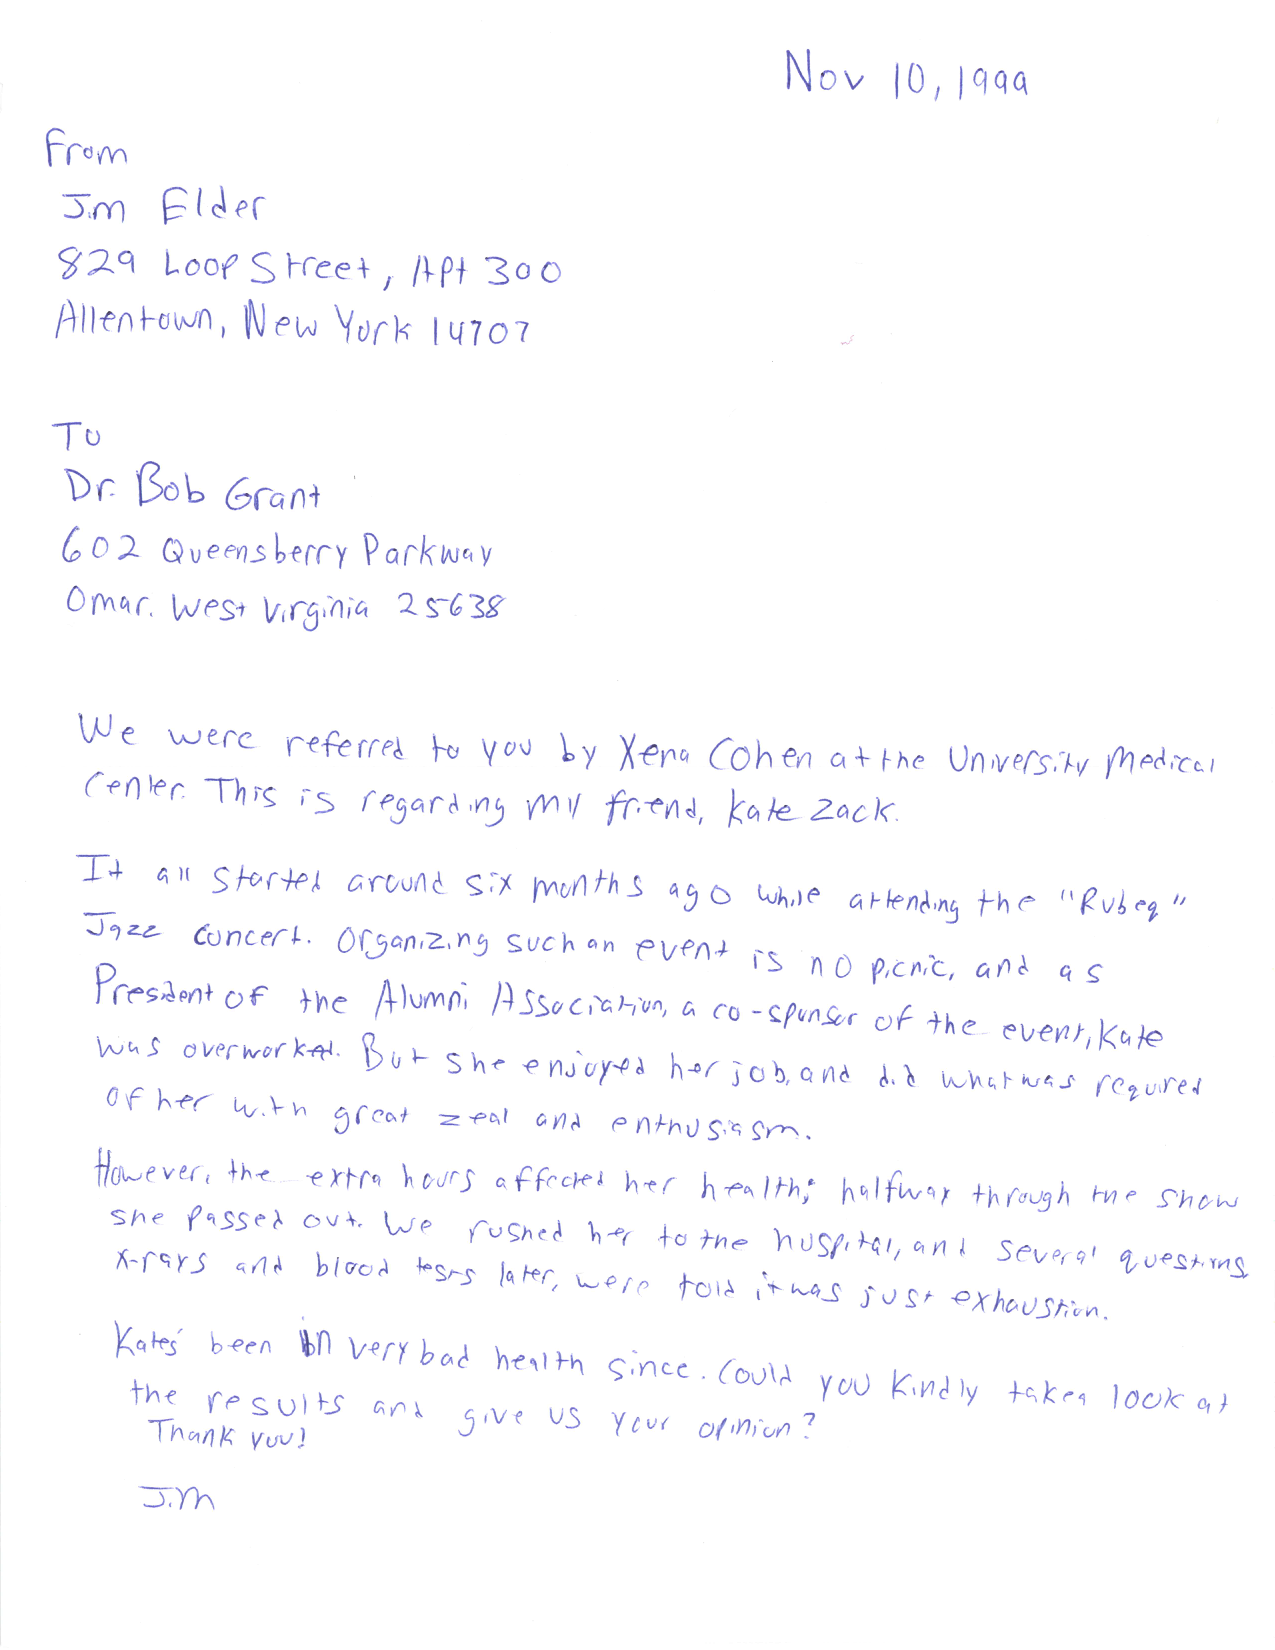 Nov 10, 1999
From
Jim Elder
829 Loop Street, Apt 300
Allentown, New York 14707
To
Dr. Bob Grant
602 Queensberry Parkway
Omar. West Virginia 25638
We were referred to you by Xena Cohen at the University Medical
Center. This is regarding my friend, Kate Zack.
It all started around six months ago while attending the "Rubeq"
Jazz concert. Organizing such an event is no picnic, and as
President of the Alumni Association, a co-sponsor of the event, Kate
was overworked. But she enjoyed her job, and did what was required
of her with great zeal and enthusiasm.
However, the extra hours affected her health; halfway through the show
she passed out. We rushed her to the hospital, and several questions,
x-rays and blood tests later, were told it was just exhaustion.
Kate's been in very bad health since. Could you kindly take a look at
the results and give us your opinion?
Thank you!
Jim